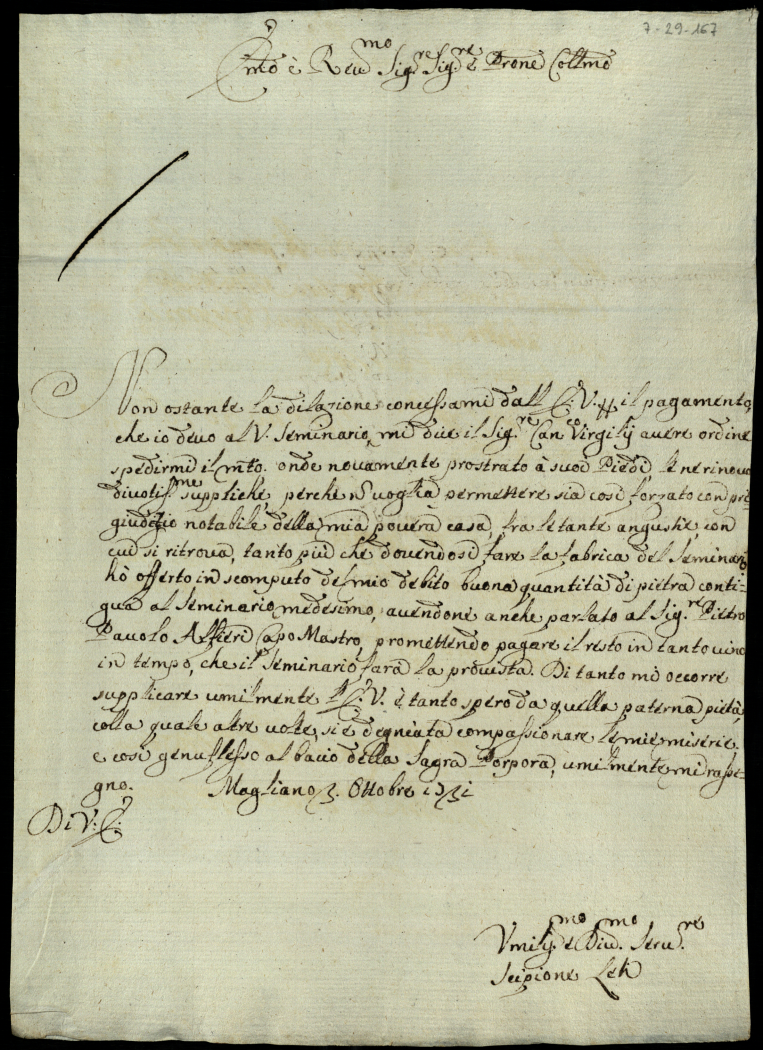 7-29-167
Emo è Reumo Sig.re Sig.re è Prone Collmo
Non ostante la dilazione concessami dall' E.V. il pagamento,
che io deuo al V. Seminario, mi dice il Sig.re Can.co Virgilij auere ordine
spedirmi il mto. onde nouamente prostrato à suoi Piedi le ne rinouo
diuotisme suppliche, perche ñ voglia permettere sia così forzato con pre-
giudizio notabile della mia pouera casa, fra le tante angustie, con
cui si ritroua, tanto più che douendosi fare la fabrica del Seminario
hò offerto in scomputo del mio debito buona quantità di pietra conti-
gua al Seminario medesimo, auendone anche parlato al Sig.re Pietro
Pauolo Alfieri Capo Mastro, promettendo pagare il resto in tanto uino
in tempo, che il Seminario farà la prouista. Di tanto mi occorre
supplicare umilmente l'E.V. è tanto spero da quella paterna pietà,
colla quale altre uolte si è degniata compassionare le mie miserie.
e così genuflesso al bacio della Sagra Porpora, umilmente mi rasse-
gno. Magliano 3. Ottobre 1731
Di V. E.
Vmiliss.mo e Diu.mo Seru.re
Scipione Leti